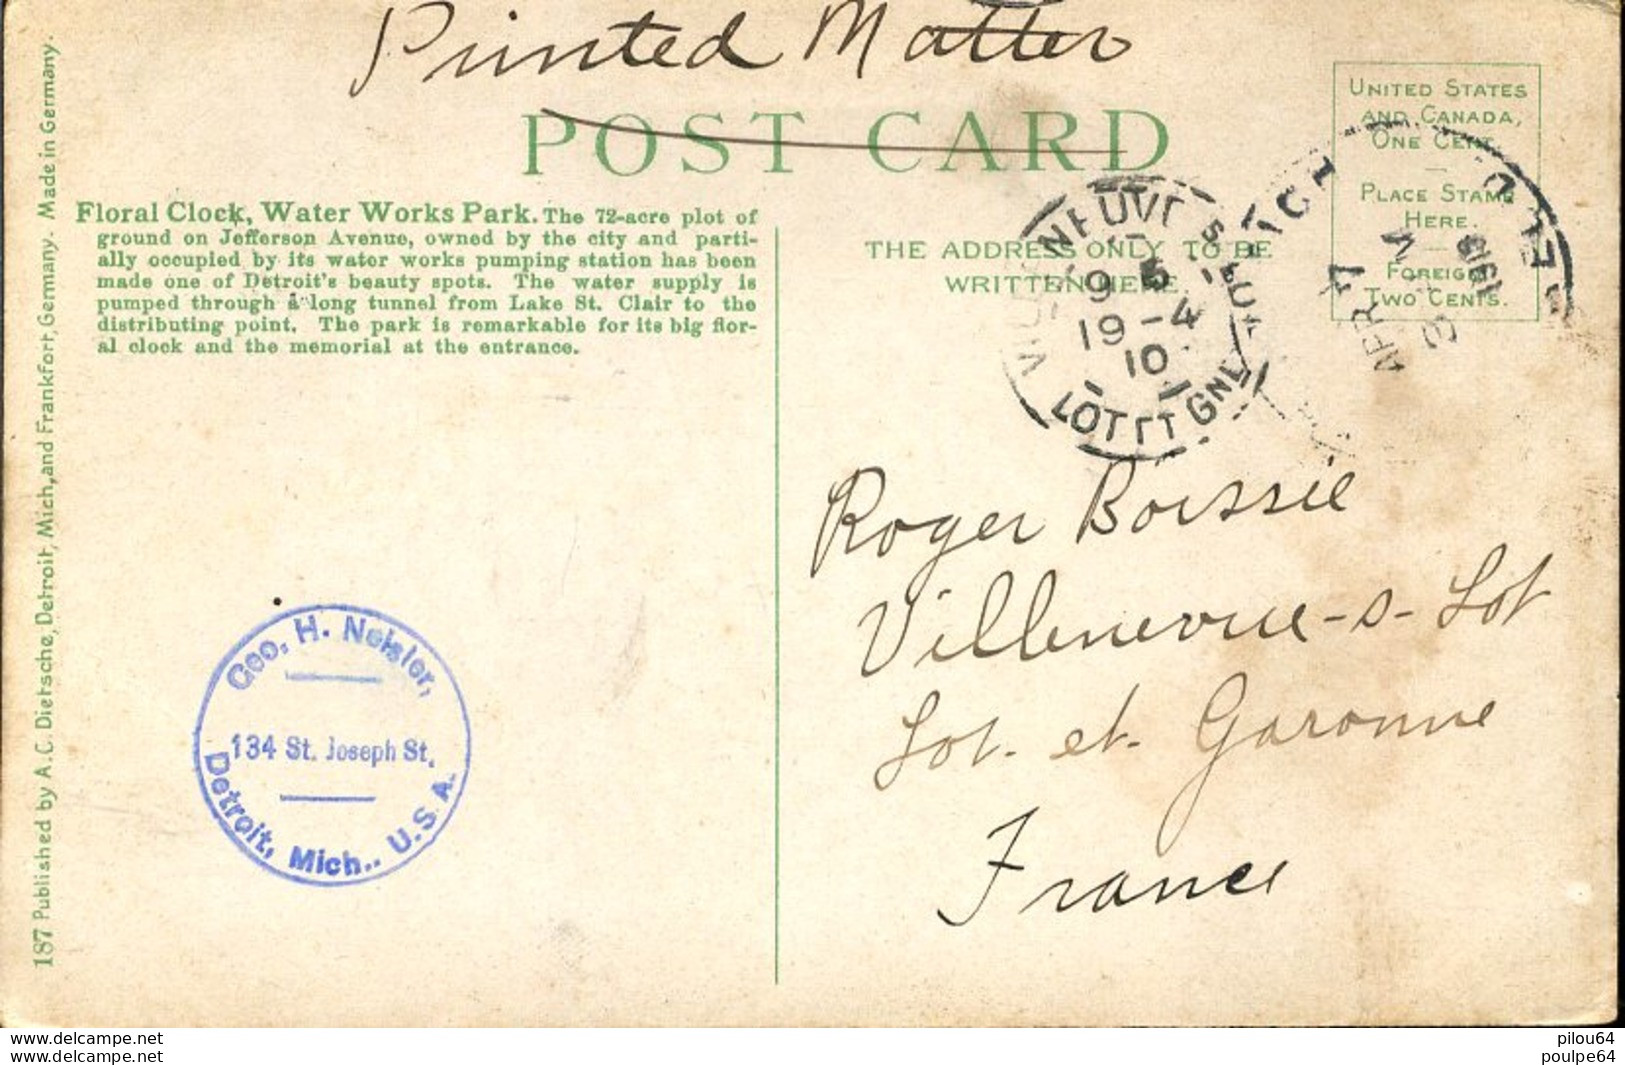 Printed Matter
POST CARD
UNITED STATES
AND CANADA,
ONE CENT.
PLACE STAMP
HERE.
FOREIGN
TWO CENTS.
Floral Clock, Water Works Park. The 72-acre plot of
ground on Jefferson Avenue, owned by the city and parti-
ally occupied by its water works pumping station has been
made one of Detroit's beauty spots. The water supply is
pumped through a long tunnel from Lake St. Clair to the
distributing point. The park is remarkable for its big flor-
al clock and the memorial at the entrance.
THE ADDRESS ONLY TO BE
WRITTEN HERE.
19-4
10
LOT ET GNE
APR 7
Roger Boissie
Villenevue-s-Lot
Lot. et. Garonne
France
Geo. H. Neisler,
134 St. Joseph St.
Detroit, Mich.. U.S.A.
187 Published by A.C. Dietsche, Detroit, Mich, and Frankfort, Germany. Made in Germany.
www.delcampe.net
www.delcampe.net
pilou64
poulpe64